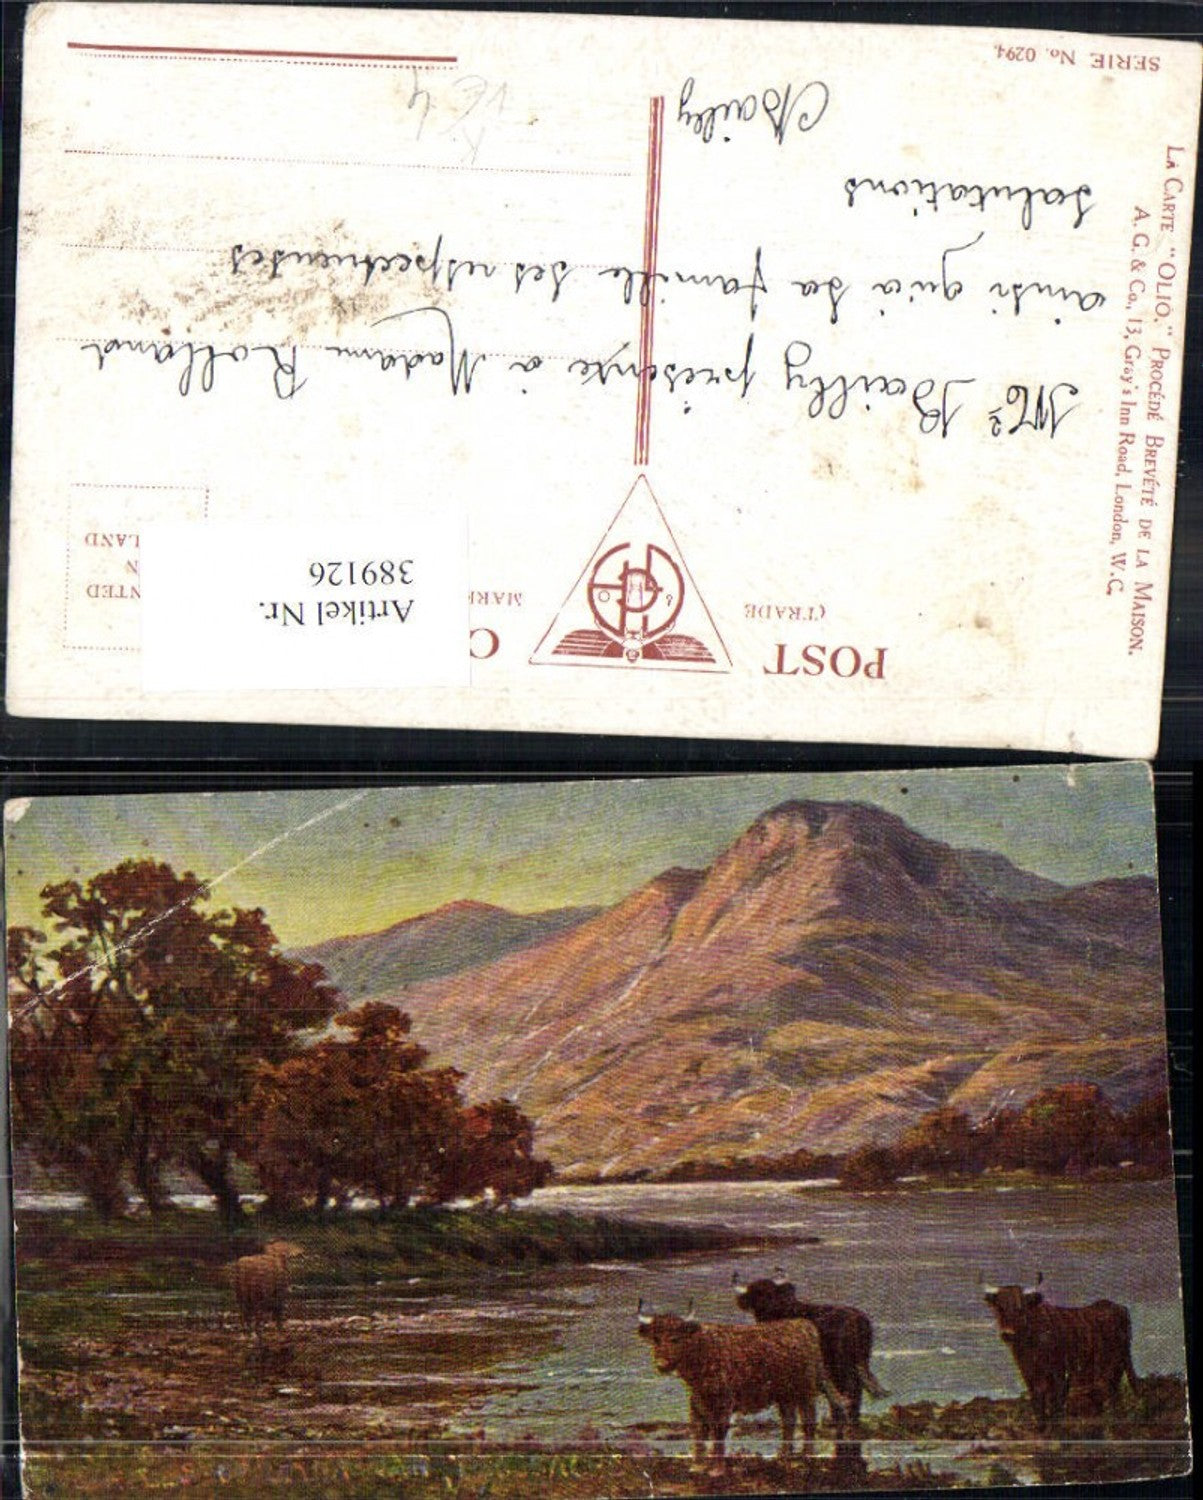 SERIE No. 0294.
LA CARTE "OLIO," PROCÉDÉ BREVÉTÉ DE LA MAISON.
A. G. & Co., 13, Gray's Inn Road, London, W.C.
POST C
(TRADE MARK
NTED
N
LAND
Artikel Nr.
389126
Bailly présente à Madame Rolland
ainsi qu'à sa famille ses respectueuses
salutations
CBailly